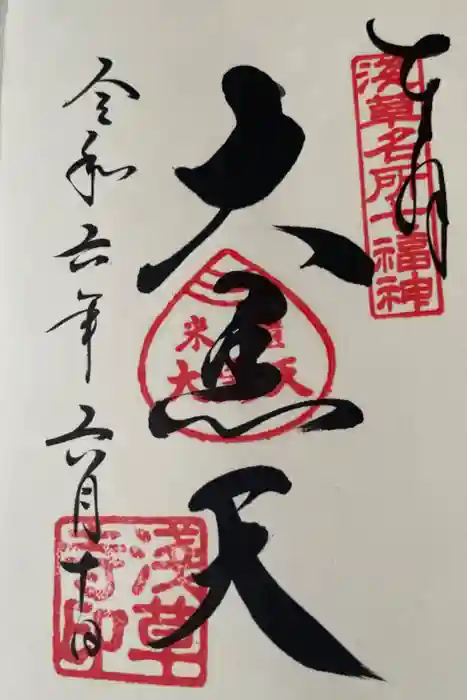 奉拝
浅草名所七福神
大黒天
米
大黒天
令和六年六月十日
浅草寺印